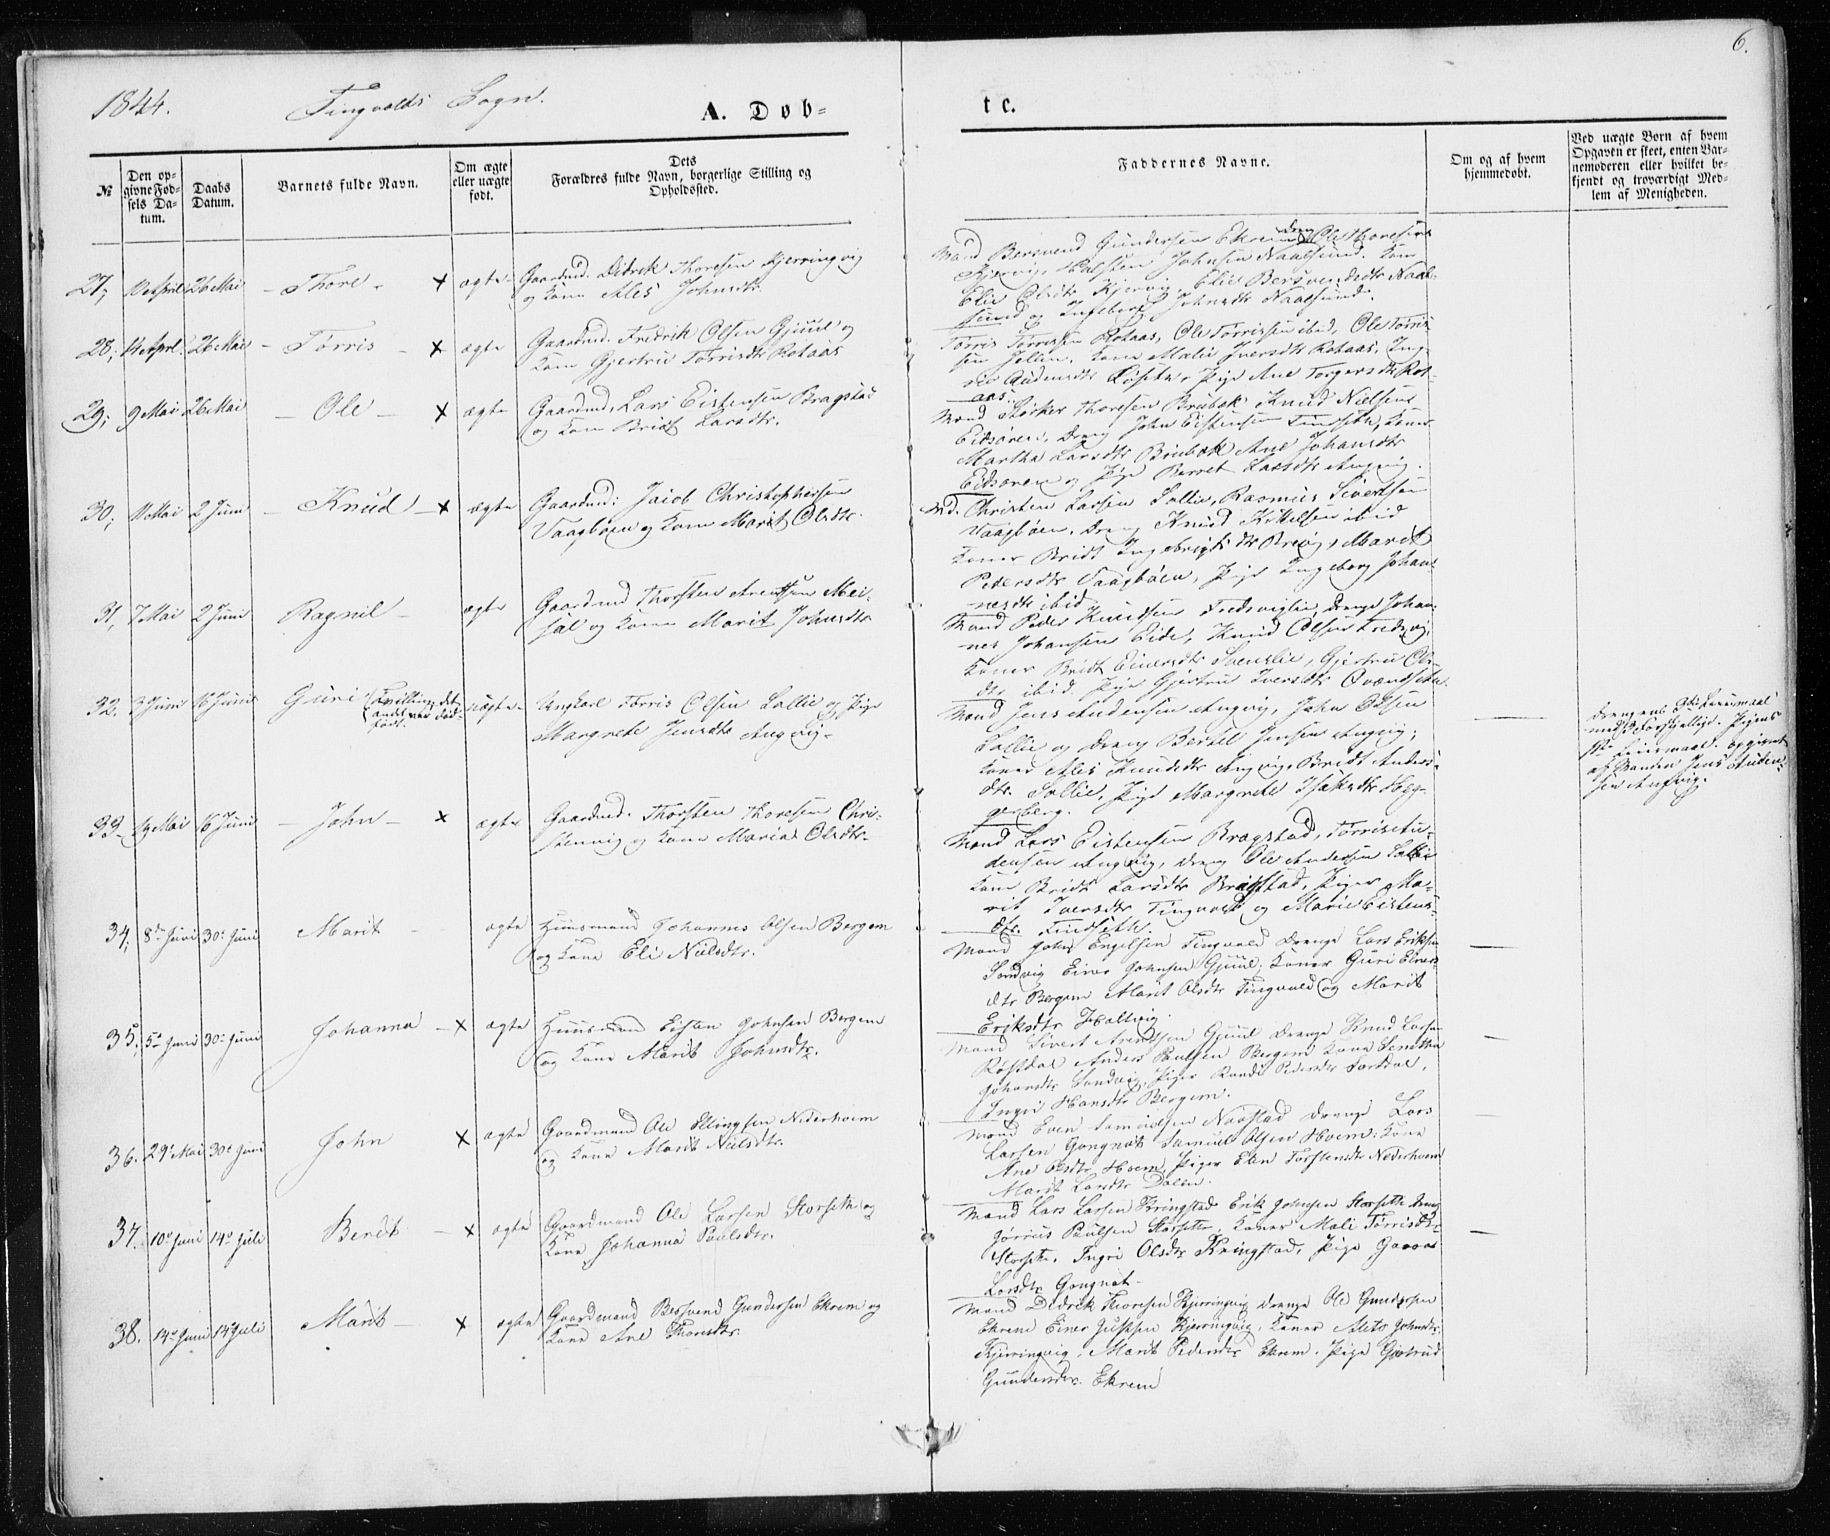 6.
1844. Tingvolds Sogn.
A. Døb=
te.
№
Den op-
givne Fød-
sels Da-
tum.
Daabs
Datum.
Barnets fulde Navn.
Om ægte
eller uægte
født.
Dets
Forældres fulde Navn, borgerlige Stilling og
Opholdssted.
Faddernes Navne.
Om og af hvem
hjemmedøbt.
Ved uægte Børn af hvem
Opgaven er skeet, enten Bar-
nemoderen eller hvilket be-
kjendt og troværdigt Med-
lem af Menigheden.
27; 26 Mai - Thore - x ægte
Gaardmd. Didrik Thoresen Kjerringvig
og Kone Ales Johnsdtr.
Mænd Bersvend Gundersen Ekrem, Dreng Ole Thoresen
Halsten Johnsen Naalsund. Kone
sund og Ingeborg Johnsdtr Naalsund.
28; 14 April 26 Mai - Tørris - x ægte
Gaardmd. Fredrik Olsen Gjuul og
Kone Gjertru Tørrisdtr Rotaas
Tørris Tørresen Rotaas, Ole Tørrissen ibid, Ole Tørris-
sen Kone Malie Iversdtr Rotaas, Ing-
Pige Ane Torgersdtr Rot-
aas.
29; 9 Mai 26 Mai - Ole - x ægte
Gaardmd. Lars Eistensen Bragstad
og Kone Bridt Larsdtr.
Mænd Størker Thoresen Brubæk, Knud Nielsen
Eidsøren, Dreng John Eistensen Findseth, Koner
Martha Larsdtr Brubæk Ane Johansdtr
Eidsøren og Pige Berret Larsdtr Angvig.
30; 2 Juni - Knud - x ægte
Gaardmd: Jacob Christophersen
Vaagbøen og Kone Marit Olsdtr.
Md. Christen Larsen Lallie, Rasmus Sivertsen
Vaagbøen, Dreng Knud Kittelsen ibid
Koner Bridt Ingebrigtsdtr Marit
Pedersdtr Vaagbøen, Pige Ingeborg Johan-
nesdtr ibid
31, 7 Mai 2 Juni Ragnil - ægte
Gaardmd Thorsten Arentsen Mei-
sal og Kone Marit Johnsdtr
Mænd Peder Knudsen Fredsviglie, Drenge Johan-
nes Johansen Eide, Knud Olsen Fredsvig,
Koner Bridt Einersdtr Svenslie, Gjertru Ols-
dtr ibid. Pige Gjertru Iversdtr
32. 3 Juni 16 Juni Guri (Tvilling, det
andet var død-
født. uægte
Ungkarl Tørris Olsen Lallie og Pige
Margrete Jensdtr Angvig.
Mænd Jens Audensen Angvig, John Olsen
Lallie og Dreng Bertel Jensen Angvig;
Koner Ales Knudsdtr Angvig, Bridt Anders-
dtr. Lallie, Pige Margrete Isaksdtr Heg-
gerberg.
Drengens Leiermaal
med Forskjellige. Pigens
1ste Leiermaal. opgivet
af Manden Jens Auden-
sen Angvig.
33 19 Mai 16 Juni - John - x ægte
Gaardmd. Thorsten Thoresen Chri-
stenvig og Kone Maria Olsdtr.
Mænd Lars Eistensen Bragstad, Tørris Au-
densen Angvig, Dreng Ole Andersen Lallie
Kone Bridt Larsdtr Bragstad, Piger Ma-
rit Iversdtr Tingvold og Marie Eistens-
dtr. Findseth.
34, 8de Juni 30te Juni Marit - ægte
Huusmand Johannes Olsen Bergem
og Kone Eli Nielsdtr.
Mænd John Engelsen Tingvold Drenge Lars Eriksen
Sandvig Einer Johnsen Gjuul, Koner Guri Einers-
dtr Bergem Marit Olsdtr Tingvold og Marit
Eriksdtr Holtvig.
35. 5te Juni 30te Juni Johanna - x ægte
Huusmand Eisten Johnsen Bergem
og Kone Marit Johnsdtr.
Mænd Sivert Arentsen Gjuul Drenge Knud Larsen
Røstdal Anders Paulsen Bergem Kone Seretha
Johansdtr Sandvig, Piger Randi Pedersdtr
Ingri Hansdtr Bergem.
36. 29de Mai 30te Juni John x ægte
Gaardmand Ole Ellingsen Nederhoem
og Kone Marit Nielsdtr.
Mænd Even Samuelsen Naastad Drenge Lars
Larsen Gangnat Samuel Olsen Hoem; Kone
Ane Olsdtr Hoem, Piger Elen Torstensdtr Nederhoem
Marit Larsdtr Dalen.
37. 10de Juni 14de Juli Berit - x ægte
Gaardmand Ole Larsen Storseth og
Kone Johanna Paulsdtr.
Mænd Lars Larsen Kringstad Erik Johnsen Storseth Dreng
Jørris Paulsen Storseth, Koner Mali Tørrisdtr
Storseth, Ingri Olsdtr Kringstad, Pige
Larsdtr Gangnat -
38. 14de Juni 14de Juli Marit - x ægte
Gaardmand Bersvend Gundersen Ekrem og
Kone Ane Thoresdtr.
Mænd Didrik Thoresen Kjerringvig Drenge Ole Gundersen
Ekrem Einer Kjerringvig, Koner Alets Johnsdtr.
Kjerringvig, Marit Pedersdtr Ekrem. Pige Gjertrud
Gundersdtr. Ekrem